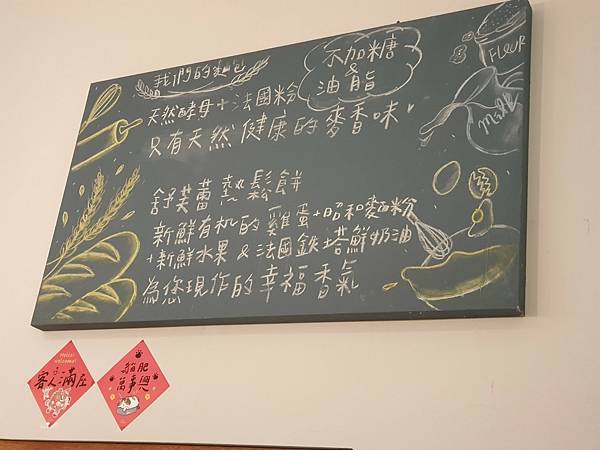 我們的麵包
不加糖
&
油脂
天然酵母+法國粉
只有天然健康的麥香味
舒芙蕾熱鬆餅
新鮮有机的雞蛋+昭和麵粉
+新鮮水果&法國鉄塔鮮奶油
為您現作的幸福香氣
FLOUR
MILK
Hello!
welcome!
客人滿座
貓肥
萬事興